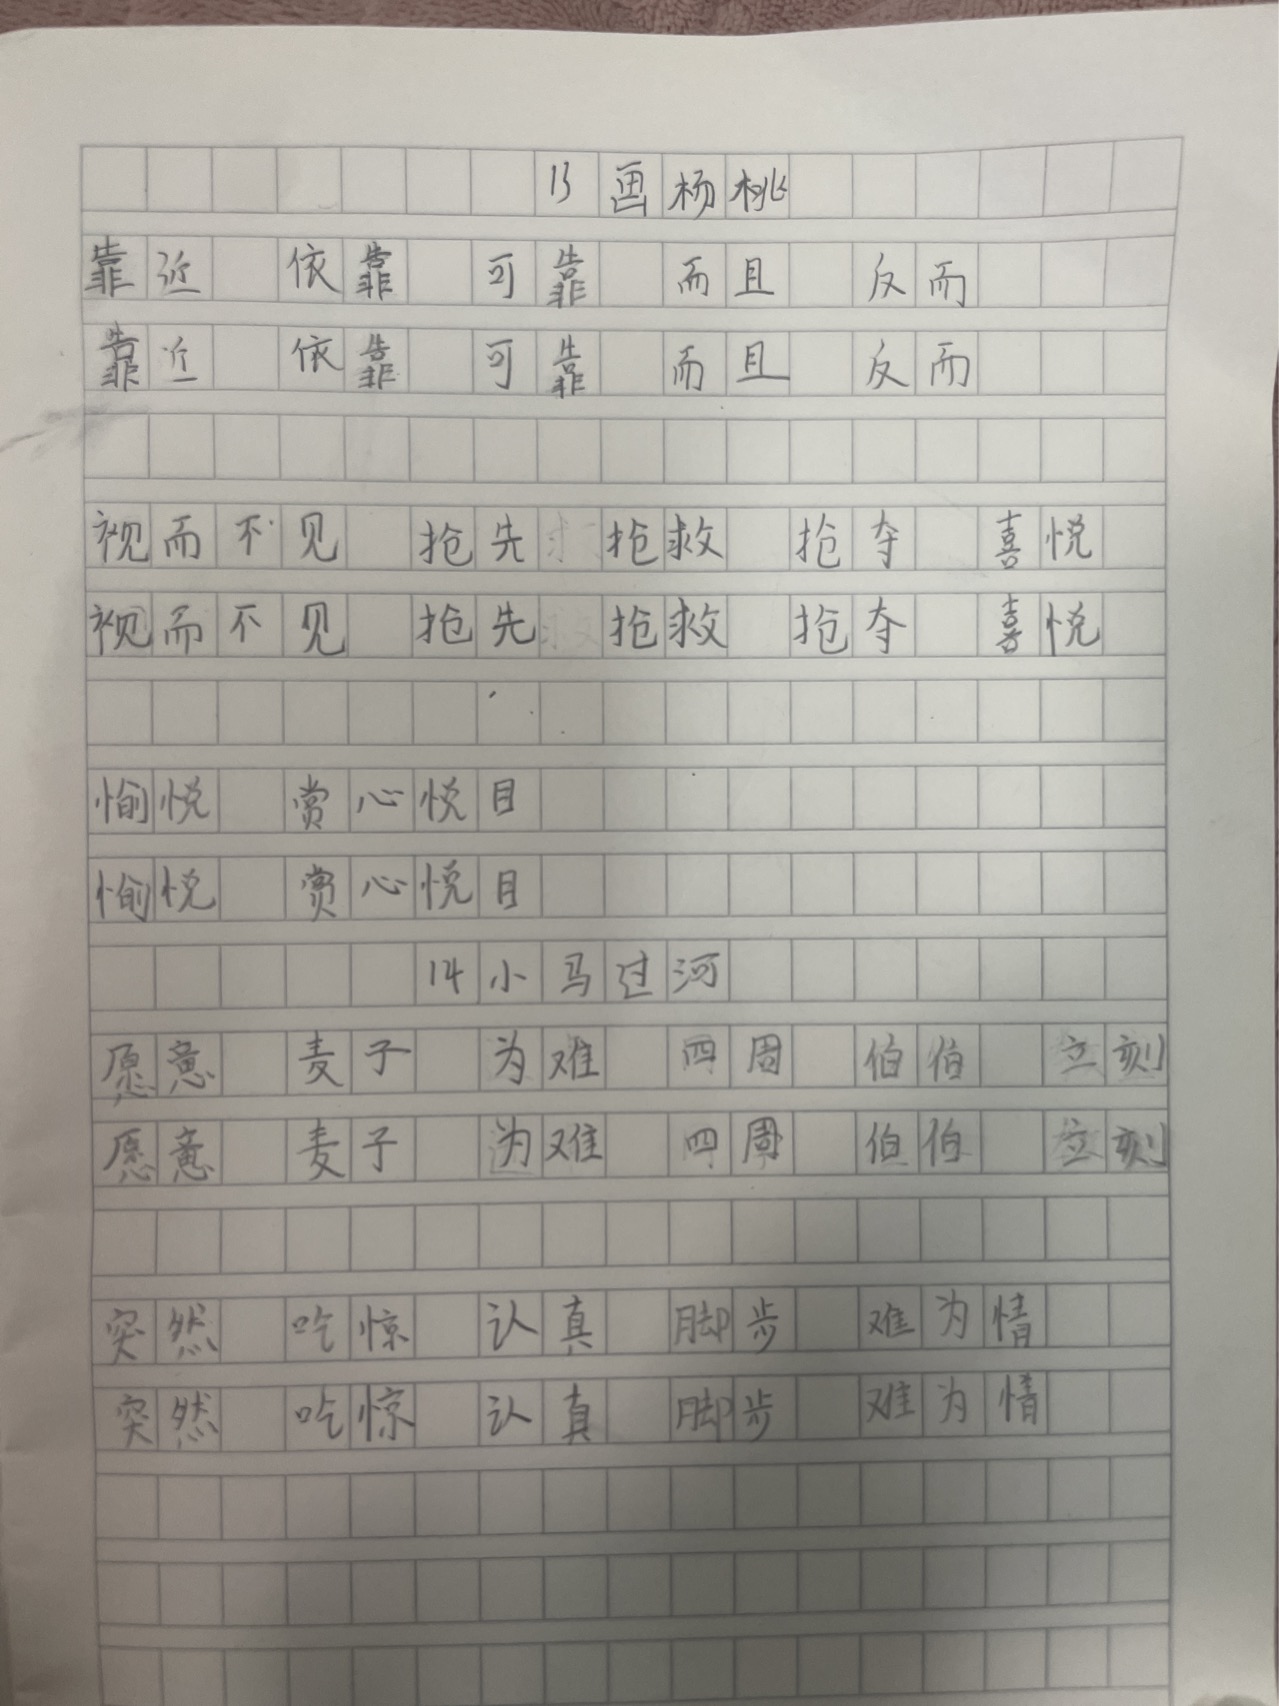 13画杨桃
靠近 依靠 可靠 而且 反而
靠近 依靠 可靠 而且 反而
视而不见 抢先 抢救 抢夺 喜悦
视而不见 抢先 抢救 抢夺 喜悦
愉悦 赏心悦目
愉悦 赏心悦目
14小马过河
愿意 麦子 为难 四周 伯伯 立刻
愿意 麦子 为难 四周 伯伯 立刻
突然 吃惊 认真 脚步 难为情
突然 吃惊 认真 脚步 难为情